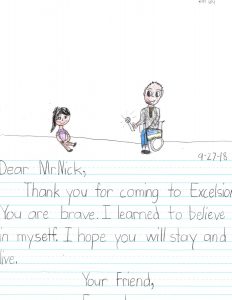 9-27-18
Dear Mr.Nick,
Thank you for coming to Excelsior
You are brave. I learned to believe
in myself. I hope you will stay and
live.
Your Friend,